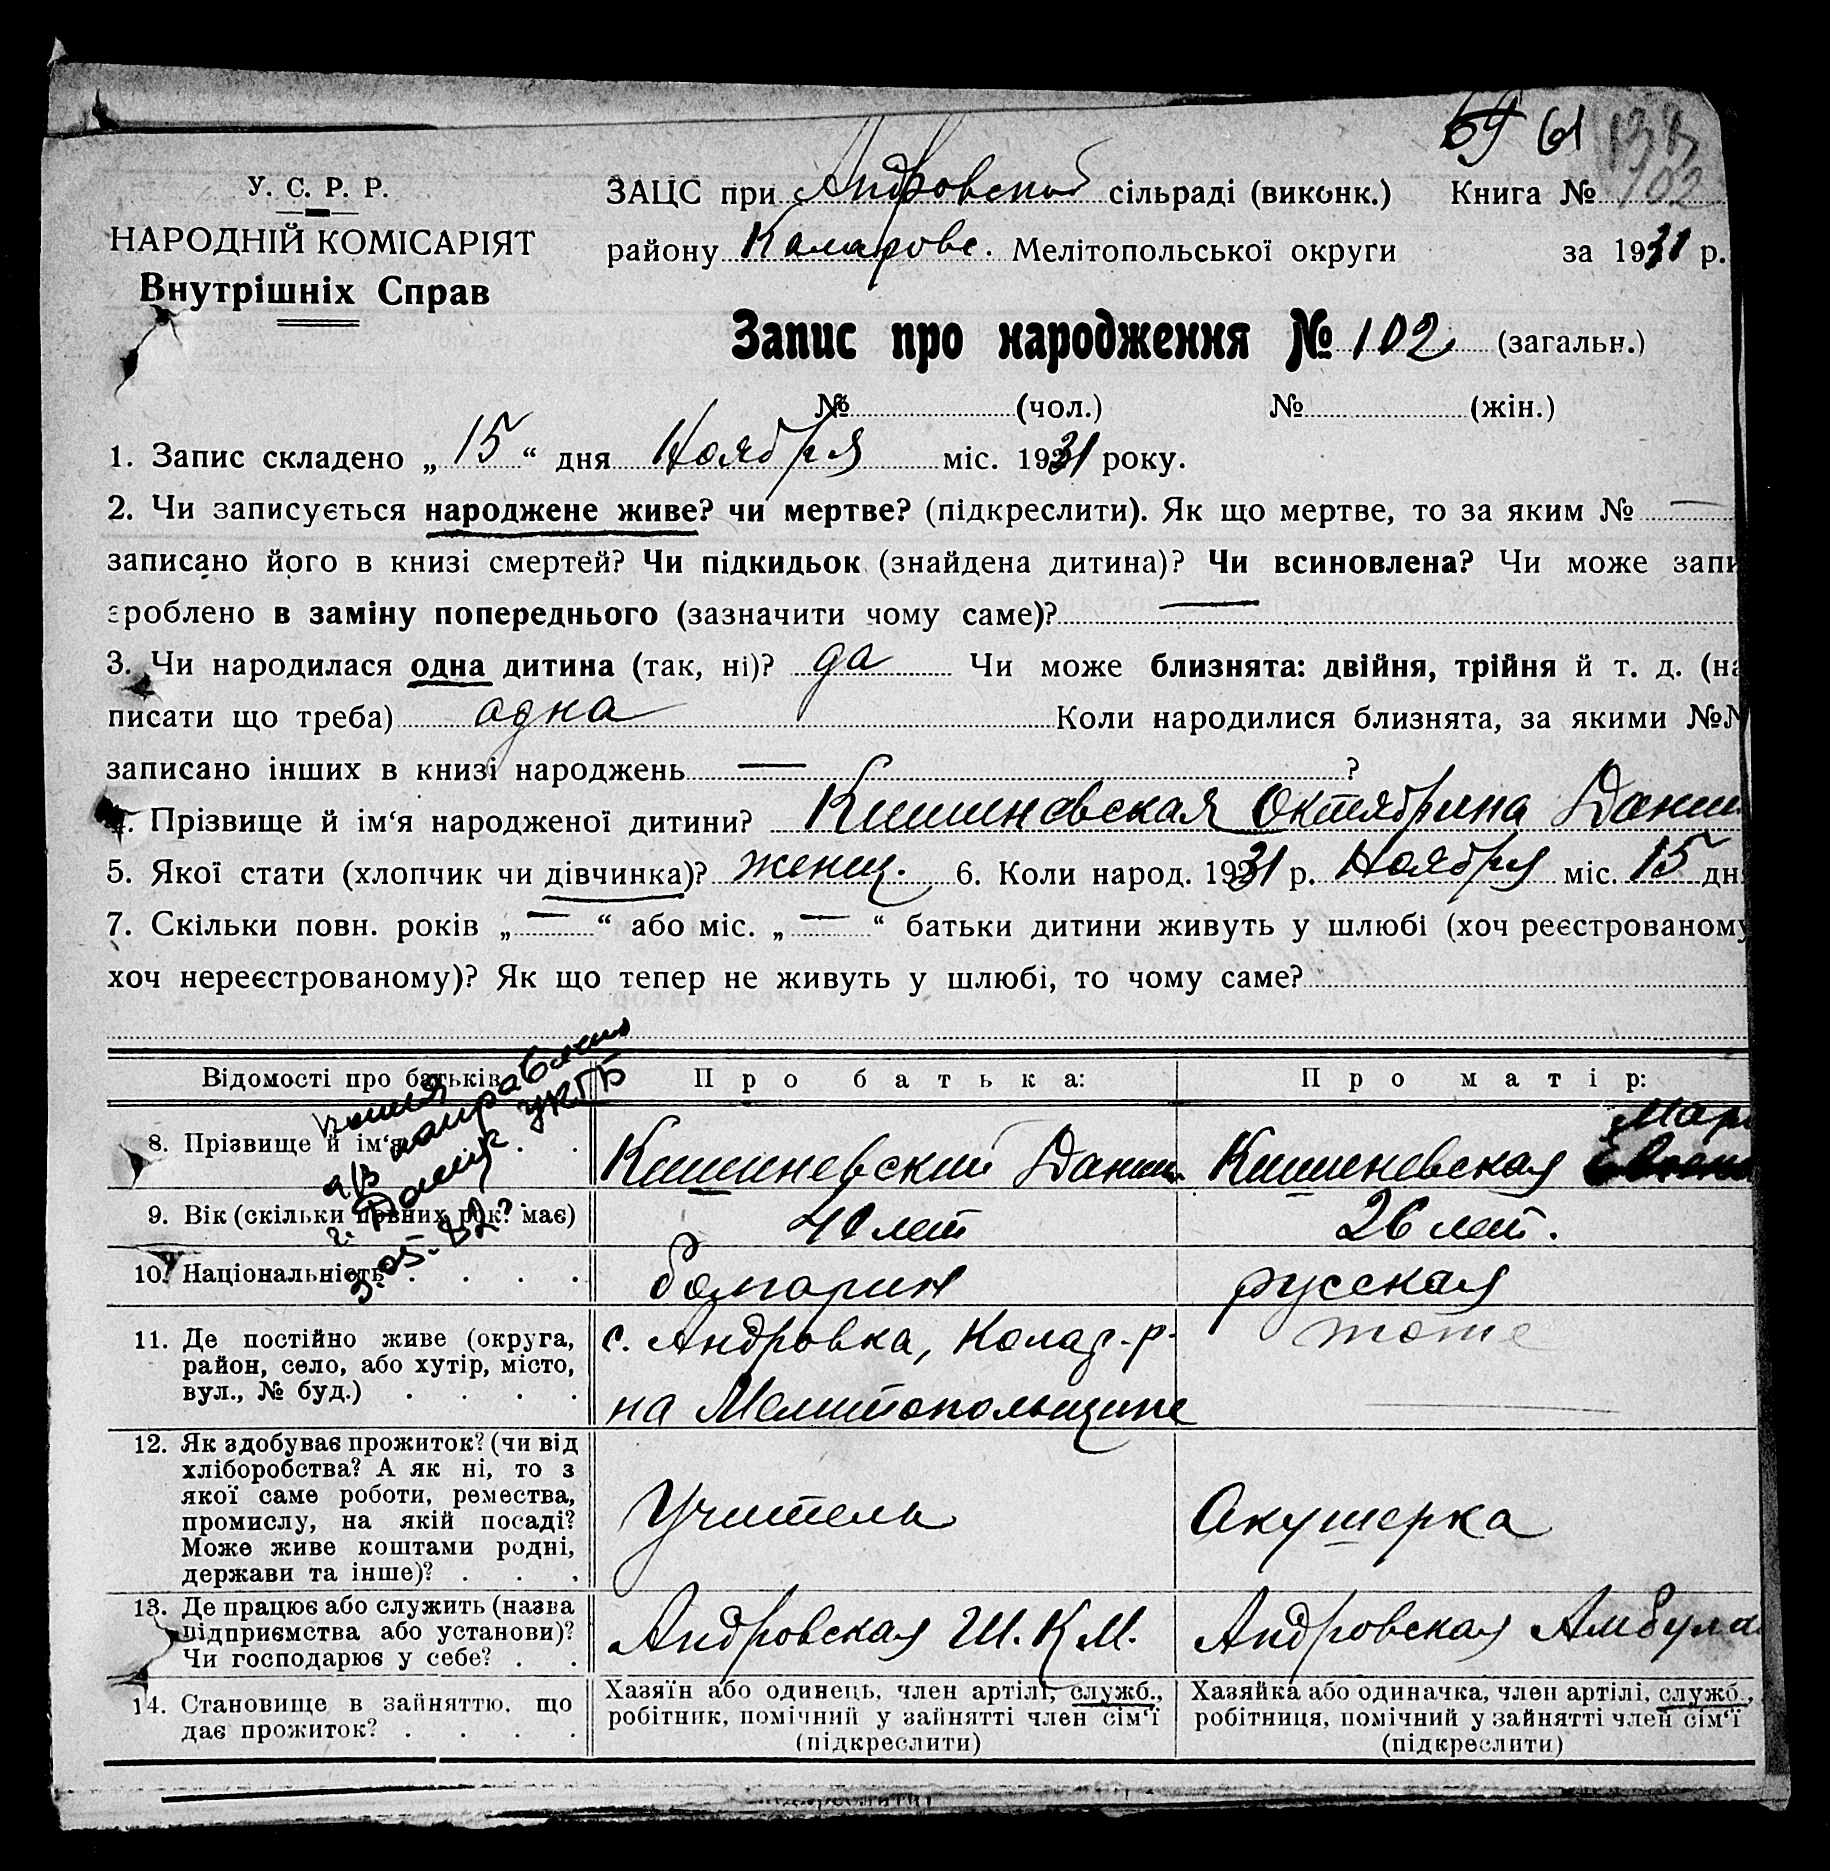 69 61 138
102
У. С. Р. Р.
НАРОДНІЙ КОМІСАРІЯТ
Внутрішніх Справ
ЗАЦС при Андровской сільраді (виконк.) Книга №
району Коларовс. Мелітопольської округи за 1931 р.
Запис про народження № 102 (загальн.)
№ (чол.) № (жін.)
1. Запис складено „15“ дня Ноября міс. 1931 року.
2. Чи записується народжене живе? чи мертве? (підкреслити). Як що мертве, то за яким № —
записано його в книзі смертей? Чи підкидьок (знайдена дитина)? Чи всиновлена? Чи може запи
зроблено в заміну попереднього (зазначити чому саме)? —
3. Чи народилася одна дитина (так, ні)? да Чи може близнята: двійня, трійня й т. д. (на
писати що треба) одна Коли народилися близнята, за якими №№
записано інших в книзі народжень — ?
4. Прізвище й ім‘я народженої дитини? Кишиневская Октябрина Дани
5. Якої стати (хлопчик чи дівчинка)? женщ. 6. Коли народ. 1931 р. Ноября міс. 15 дня
7. Скільки повн. років „—“ або міс. „—“ батьки дитини живуть у шлюбі (хоч реєстрованому
хоч нереєстрованому)? Як що тепер не живуть у шлюбі, то чому саме?
Відомості про батьків
Про батька:
Про матір:
копия
а/в направлена
г. Донецк УКГБ
3.05.82
8. Прізвище й ім‘я . .
Кишиневский Данил
Кишиневская Мари
9. Вік (скільки повних рок? має)
41 лет
26 лет.
10. Національність . . . .
болгарин
русская
11. Де постійно живе (округа,
район, село, або хутір, місто,
вул., № буд.) . . . .
с. Андровка, Колар-р-
на Мелитопольщине
тоже
12. Як здобуває прожиток? (чи від
хліборобства? А як ні, то з
якої саме роботи, ремества,
промислу, на якій посаді?
Може живе коштами родні,
держави та інше)? . . .
Учитель
Акушерка
13. Де працює або служить (назва
підприємства або установи)?
Чи господарює у себе? . .
Андровская Ш.К.М.
Андровская Амбула
14. Становище в зайняттю, що
дає прожиток? . . . .
Хазяїн або одинець, член артілі, служб.,
робітник, помічний у зайнятті член сім‘ї
(підкреслити)
Хазяйка або одиначка, член артілі, служб.,
робітниця, помічний у зайнятті член сім‘ї
(підкреслити)